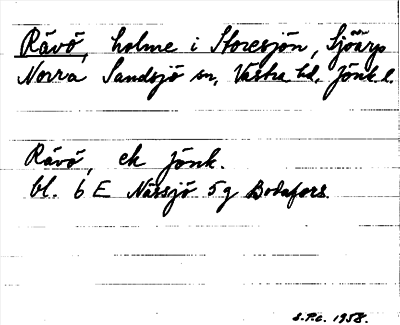 Rävö, holme i Storesjön, Sjöarp
Norra Sandsjö sn, Västra hd, Jönk l.
Rävö, ek Jönk.
bl. 6 E Nässjö 5 g Bodafors
S.P.L. 1958.